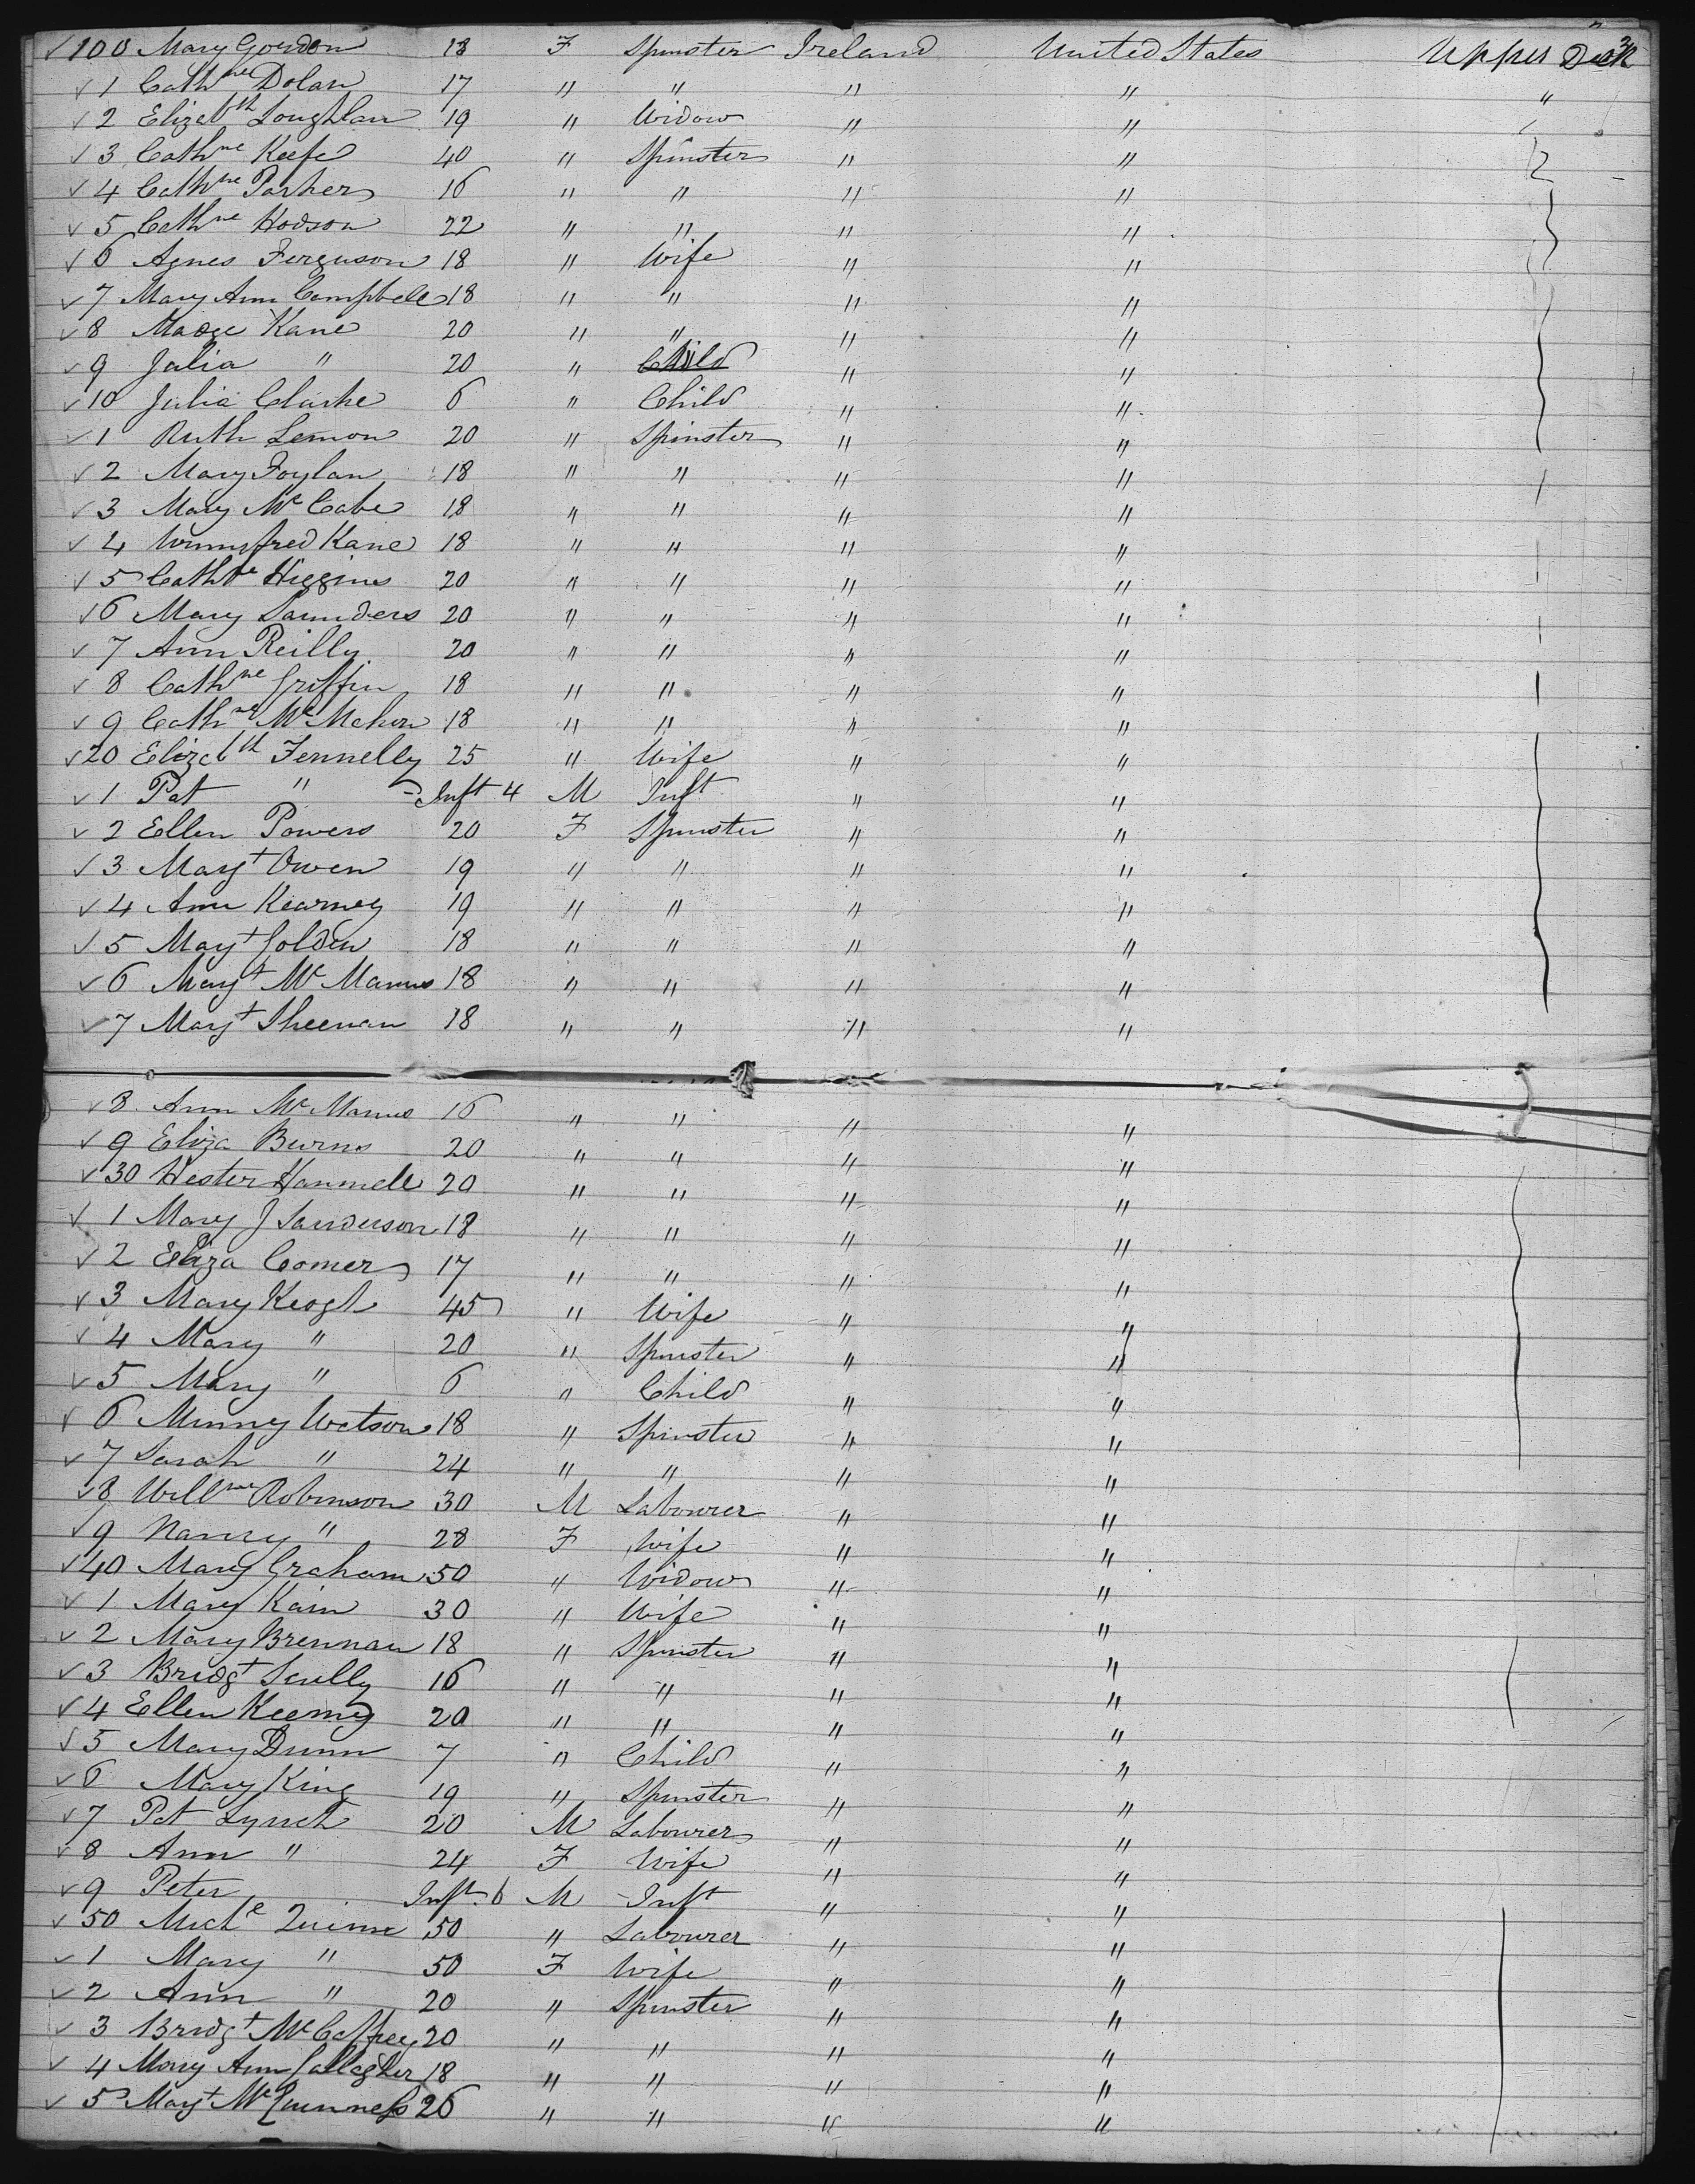 ✓ 100 Mary Gordon 18 F Spinster Ireland United States Upper Deck
✓ 1 Cathne Dolan 17 " " " " "
✓ 2 Elizabth Loughlan 19 " Widow " "
✓ 3 Cathne Keefe 40 " Spinster " "
✓ 4 Cathne Parker 16 " " " "
✓ 5 Cathne Hodson 22 " " " "
✓ 6 Agnes Ferguson 18 " Wife " "
✓ 7 Mary Ann Campbell 18 " " " "
✓ 8 Madge Kane 20 " " " "
✓ 9 Julia " 20 " Child " "
✓ 10 Julia Clarke 6 " Child " "
✓ 1 Ruth Lemon 20 " Spinster " "
✓ 2 Mary Foylan 18 " " " "
✓ 3 Mary Mc Cabe 18 " " " "
✓ 4 Winnyfred Kane 18 " " " "
✓ 5 Cathne Higgins 20 " " " "
✓ 6 Mary Saunders 20 " " " "
✓ 7 Ann Reilly 20 " " " "
✓ 8 Cathne Griffin 18 " " " "
✓ 9 Cathne Mc Mahon 18 " " " "
✓ 20 Elizabth Fennelly 25 " Wife " "
✓ 1 Pat " Inft 4 M Inft " "
✓ 2 Ellen Powers 20 F Spinster " "
✓ 3 Margt Owen 19 " " " "
✓ 4 Ann Kearney 19 " " " "
✓ 5 Margt Golden 18 " " " "
✓ 6 Margt Mc Manus 18 " " " "
✓ 7 Margt Sheenan 18 " " " "
✓ 8 Ann Mc Manus 16 " " " "
✓ 9 Eliza Burns 20 " " " "
✓ 30 Hester Hammell 20 " " " "
✓ 1 Mary J Sanderson 18 " " " "
✓ 2 Eliza Comer 17 " " " "
✓ 3 Mary Keogh 45 " Wife " "
✓ 4 Mary " 20 " Spinster " "
✓ 5 Mary " 6 " Child " "
✓ 6 Minny Watson 18 " Spinster " "
✓ 7 Sarah " 24 " " " "
✓ 8 Willm Robinson 30 M Labourer " "
✓ 9 Nancy " 28 F Wife " "
✓ 40 Mary Graham 50 " Widow " "
✓ 1 Mary Kain 30 " Wife " "
✓ 2 Mary Brennan 18 " Spinster " "
✓ 3 Bridgt Scully 16 " " " "
✓ 4 Ellen Keeny 20 " " " "
✓ 5 Mary Dunn 7 " Child " "
✓ 6 Mary King 19 " Spinster " "
✓ 7 Pat Lynch 20 M Labourer " "
✓ 8 Ann " 24 F Wife " "
✓ 9 Peter Inft 6 M Inft " "
✓ 50 Michl Quinn 50 " Labourer " "
✓ 1 Mary " 50 F Wife " "
✓ 2 Ann " 20 " Spinster " "
✓ 3 Bridgt Mc Caffrey 20 " " " "
✓ 4 Mary Ann Gallagher 18 " " " "
✓ 5 Margt Mc Guinness 26 " " " "